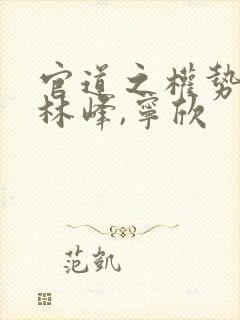 官道之權勢
林峰,寧欣
范凱